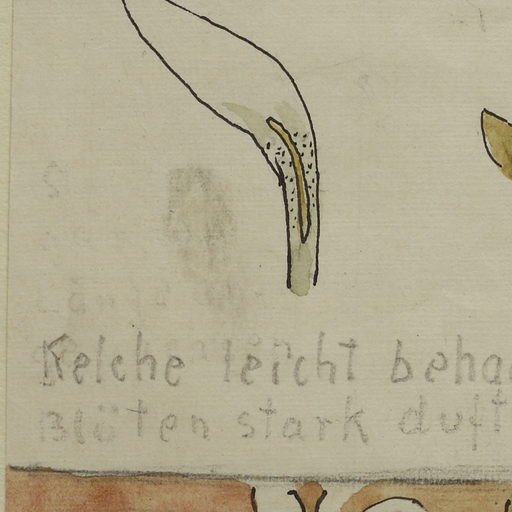 Kelche leicht beha
Blüten stark duft